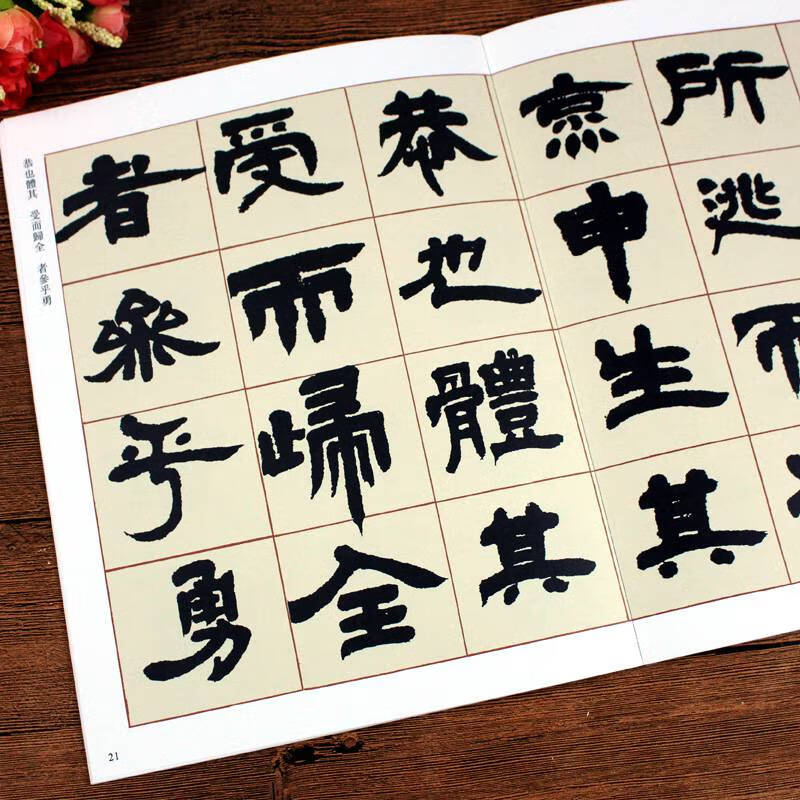 所逃而
烹申生其
恭也體其
受而歸全
者參乎勇
恭也體其 受而歸全 者參乎勇
21